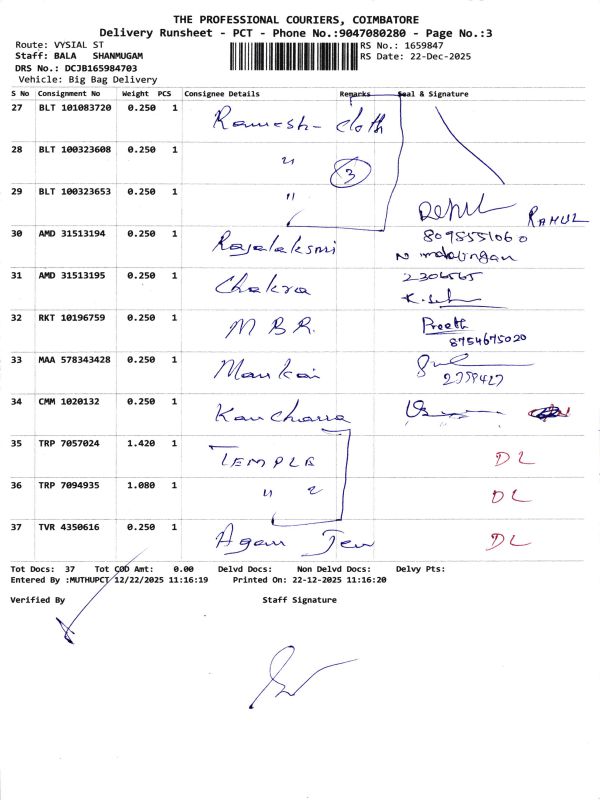 THE PROFESSIONAL COURIERS, COIMBATORE
Delivery Runsheet - PCT - Phone No.:9047080280 - Page No.:3
Route: VYSIAL ST
RS No.: 1659847
Staff: BALA SHANMUGAM
RS Date: 22-Dec-2025
DRS No.: DCJB165984703
Vehicle: Big Bag Delivery
S No Consignment No Weight PCS Consignee Details Remarks Seal & Signature
27 BLT 101083720 0.250 1 Ramesh- Cloth
28 BLT 100323608 0.250 1 " 3
29 BLT 100323653 0.250 1 "
RAHUL
30 AMD 31513194 0.250 1 Rajalaksmi 8095551060
31 AMD 31513195 0.250 1 Chakra 2306565
32 RKT 10196759 0.250 1 M B R. Preeth
8754675020
33 MAA 578343428 0.250 1 Mankai
34 CMM 1020132 0.250 1 Kanchana
35 TRP 7057024 1.420 1 TEMPLE DL
36 TRP 7094935 1.080 1 " 2 DL
37 TVR 4350616 0.250 1 Agan Jew DL
Tot Docs: 37 Tot COD Amt: 0.00 Delvd Docs: Non Delvd Docs: Delvy Pts:
Entered By :MUTHUPCT 12/22/2025 11:16:19 Printed On: 22-12-2025 11:16:20
Verified By Staff Signature